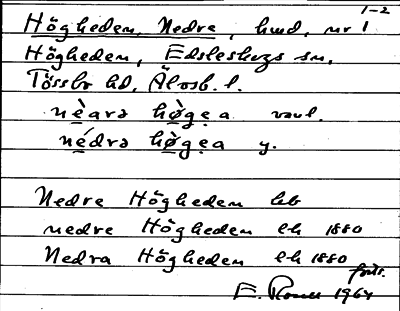 1-2
Högheden, Nedre, hmd, nr 1
Högheden, Edsleskogs sn,
Tössbo hd, Älvsb. l.
nèarə hø̀gẹa vanl.
nédrə hø̀gẹa y.
Nedre Högheden hb
nedre Högheden ek 1880
Nedra Högheden ek 1880
forts.
E. 1964